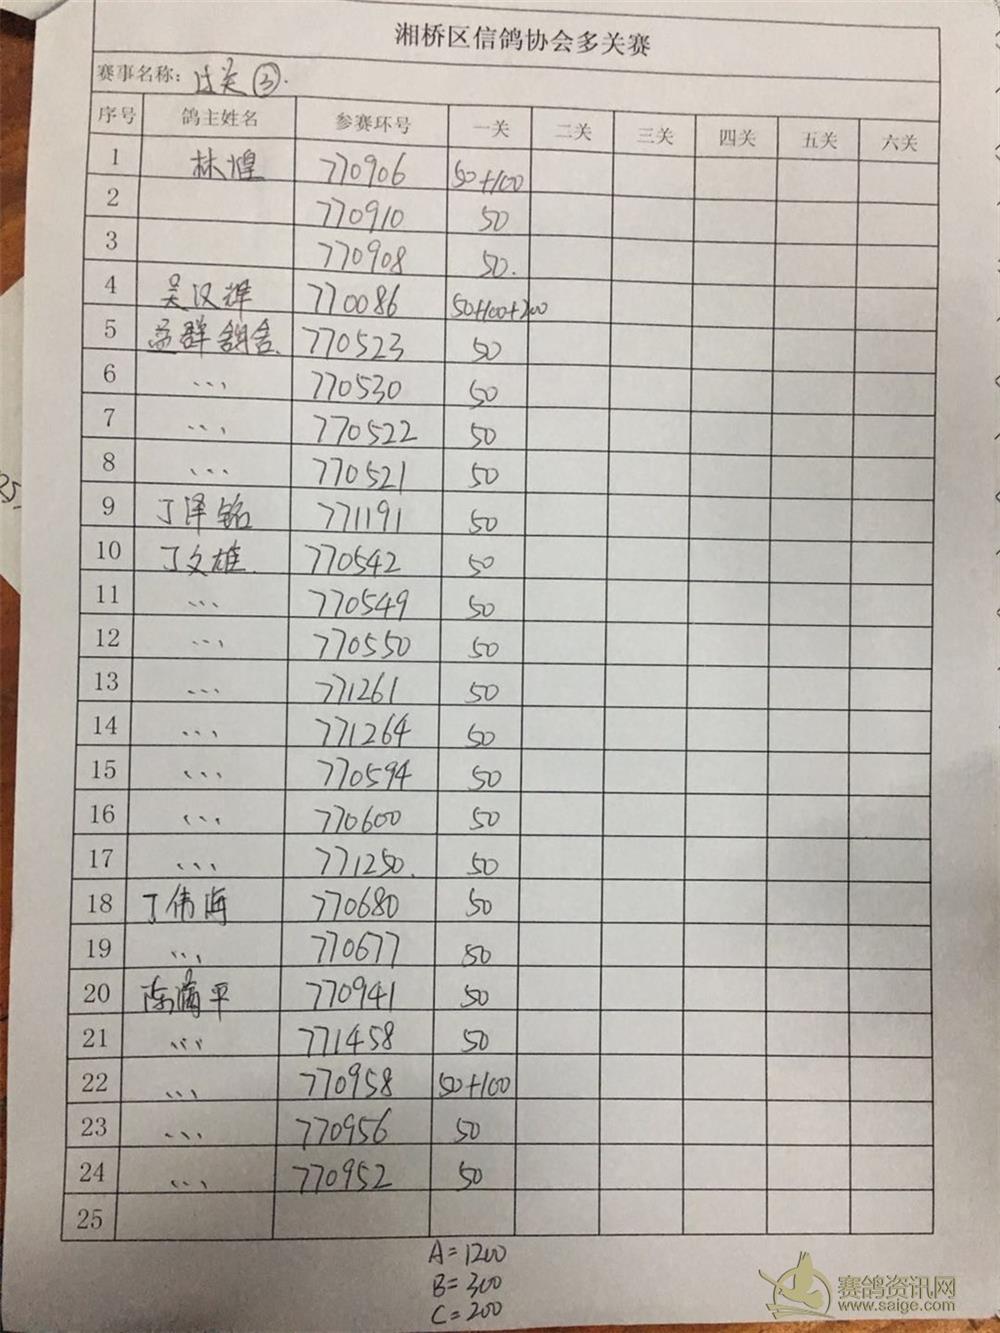 湘桥区信鸽协会多关赛
赛事名称: 过关③.
序号 鸽主姓名 参赛环号 一关 二关 三关 四关 五关 六关
1 林煌 770906 50+100
2 770910 50
3 770908 50.
4 吴汉辉 770086 50+100+200
5 群鸽舍. 770523 50
6 、、、 770530 50
7 、、、 770522 50
8 、、、 770521 50
9 丁泽铭 771191 50
10 丁文雄. 770542 50
11 、、、 770549 50
12 、、、 770550 50
13 、、、 771261 50
14 、、、 771264 50
15 、、、 770594 50
16 、、、 770600 50
17 、、、 771250. 50
18 丁伟海 770680 50
19 、、、 770677 50
20 平 770941 50
21 、、、 771458 50
22 、、、 770958 50+100
23 、、、 770956 50
24 、、、 770952 50
25
A=1200
B=300
C=200
赛鸽资讯网
www.saige.com